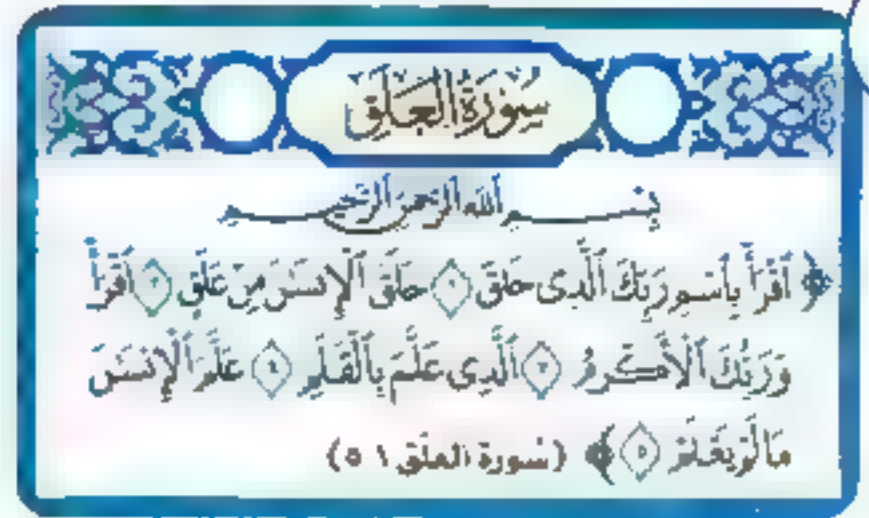 سُورَةُ العَلَق
بِسْمِ ٱللَّهِ ٱلرَّحْمَٰنِ ٱلرَّحِيمِ
﴿ ٱقْرَأْ بِٱسْمِ رَبِّكَ ٱلَّذِى خَلَقَ ١ خَلَقَ ٱلْإِنسَٰنَ مِنْ عَلَقٍ ٢ ٱقْرَأْ
وَرَبُّكَ ٱلْأَكْرَمُ ٣ ٱلَّذِى عَلَّمَ بِٱلْقَلَمِ ٤ عَلَّمَ ٱلْإِنسَٰنَ
مَا لَمْ يَعْلَمْ ٥ ﴾ (سُورة العلَق ١ ٥)